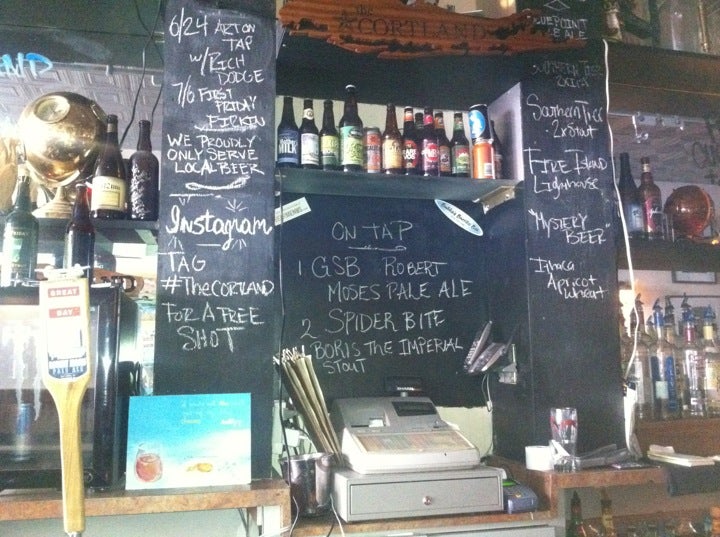 6/24 ART ON
TAP
W/ RICH
DODGE
7/6 FIRST
FRIDAY
FIRKIN
WE PROUDLY
ONLY SERVE
LOCAL BEER
INSTAGRAM
TAG
#THECORTLAND
FOR A FREE
SHOT
THE CORTLAND
ON TAP
1 GSB ROBERT
MOSES PALE ALE
2 SPIDER BITE
BORIS THE IMPERIAL
STOUT
BLUEPOINT
PALE ALE
SOUTHERN TIER
SOUTHERN TIER
2XSTOUT
FIRE ISLAND
LIGHHOUSE
"MYSTERY
BEER"
ITHACA
APRICOT
WHEAT
GREAT
DAY